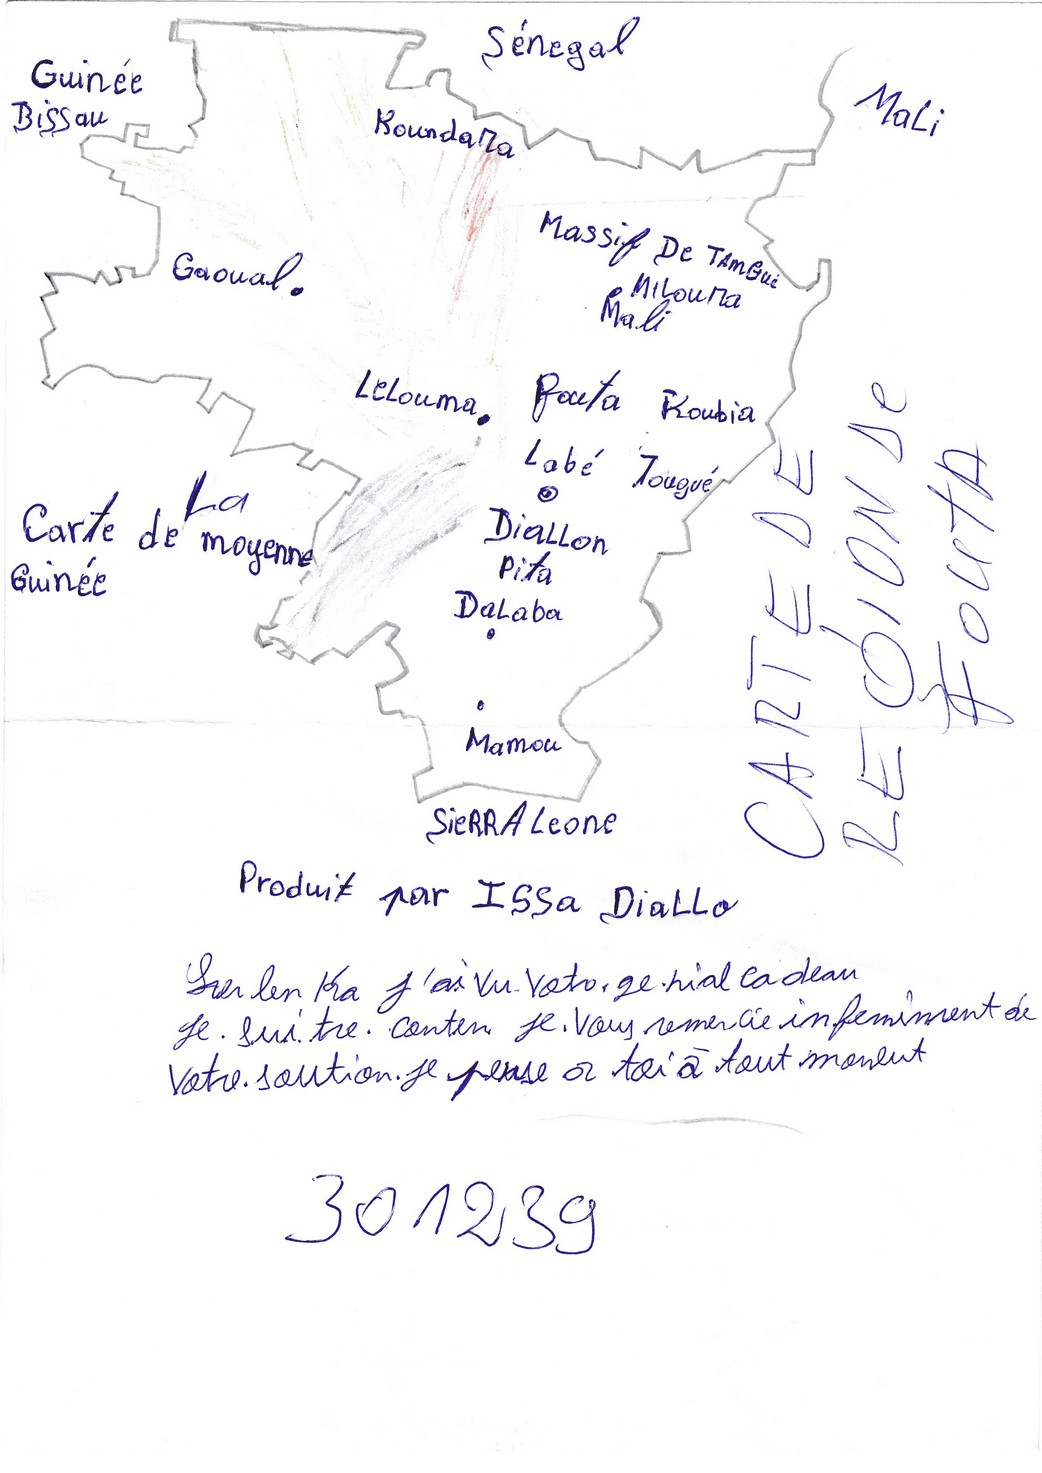 Sénegal
Guinée
Bissau
Mali
Koundara
Massif De TAMGui
Gaoual
Miloura
Mali
Lelouma
Fouta Koubia
Labé Tougué
Diallon
Pita
Dalaba
La
Carte de moyenne
Guinée
Mamou
SieRRA Leone
CARTE DE
REGION De
FOUTA
Produit par ISSa Diallo
j'ai Vu Votr. ge.nial cadeau
je. sui. tre. conten je. Vous remercie infeniment de
Votre. soution. je pense a toi à tout moment
301239